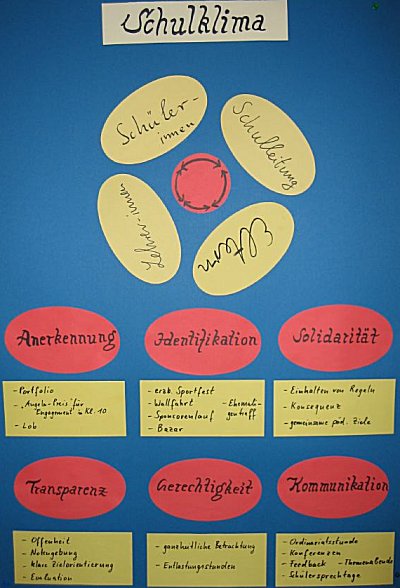 Schulklima
Schüler-
innen
Schulleitung
Lehrer-innen
Eltern
Anerkennung
- Portfolio
- "Angela-Preis für
Engagement" in Kl. 10
- Lob
Identifikation
- erzb. Sportfest
- Wallfahrt
- Sponsorenlauf
- Bazar
- Ehemali-
gentreff
Solidarität
- Einhalten von Regeln
- Konsequenz
- gemeinsame päd. Ziele
Transparenz
- Offenheit
- Notengebung
- klare Zielorientierung
- Evaluation
Gerechtigkeit
- ganzheitliche Betrachtung
- Entlastungsstunden
Kommunikation
- Ordinariatsstunde
- Konferenzen
- Feedback - Themenabende
- Schülersprechtage